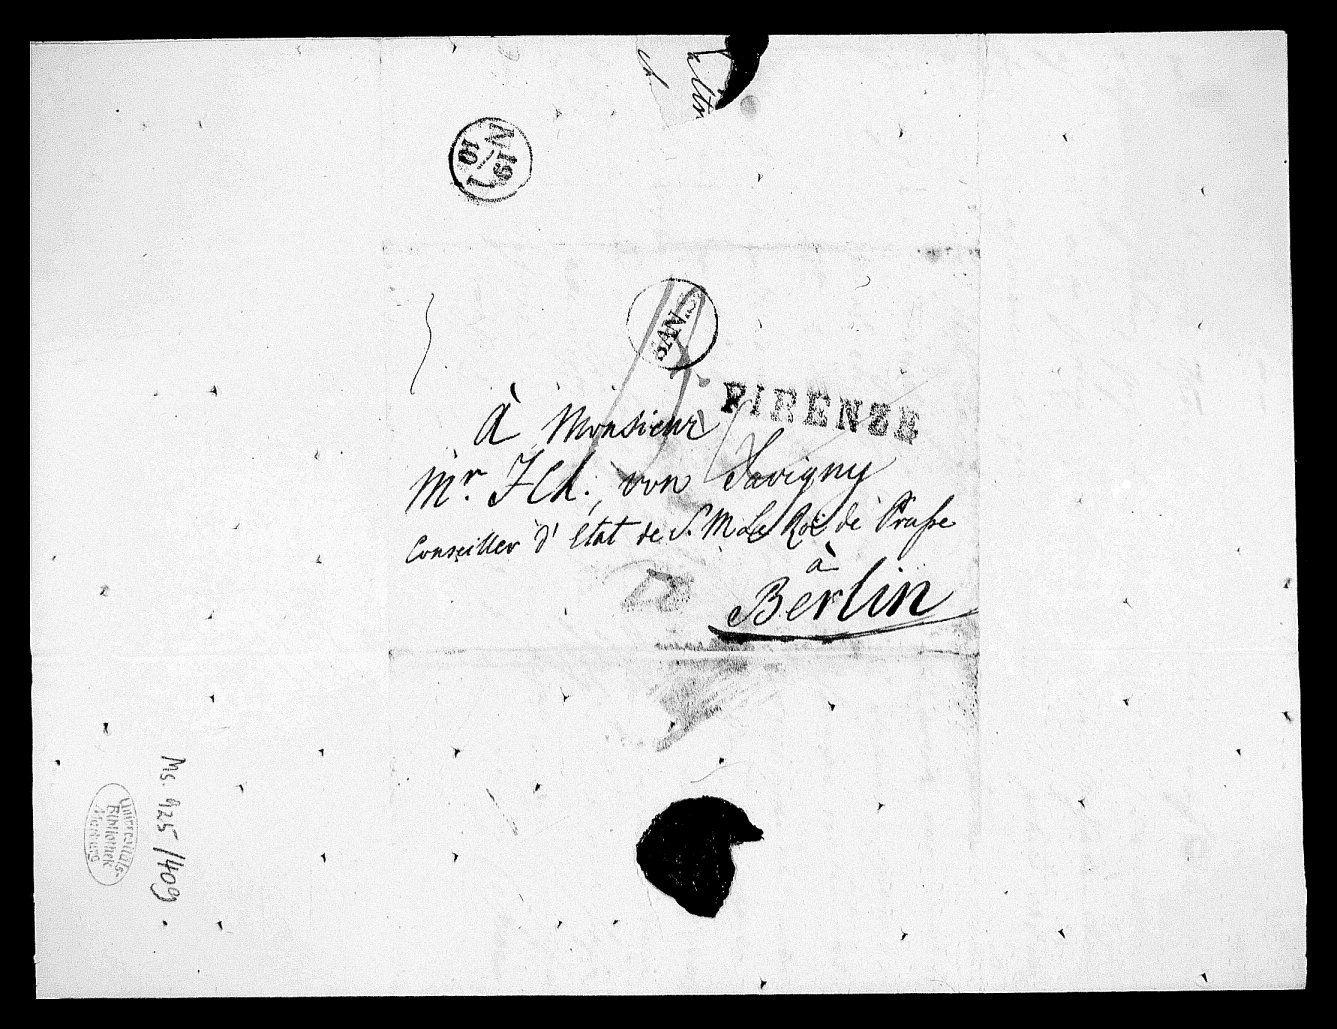 ch
N 19/10 1
FIRENZE
À Monsieur
Mr. F Ch. von Savigny
Conseiller d' Etat de S. M. Le Roi de Prusse
à
Berlin
Ms. 925/409.
Universitäts-
Bibliothek
Marburg